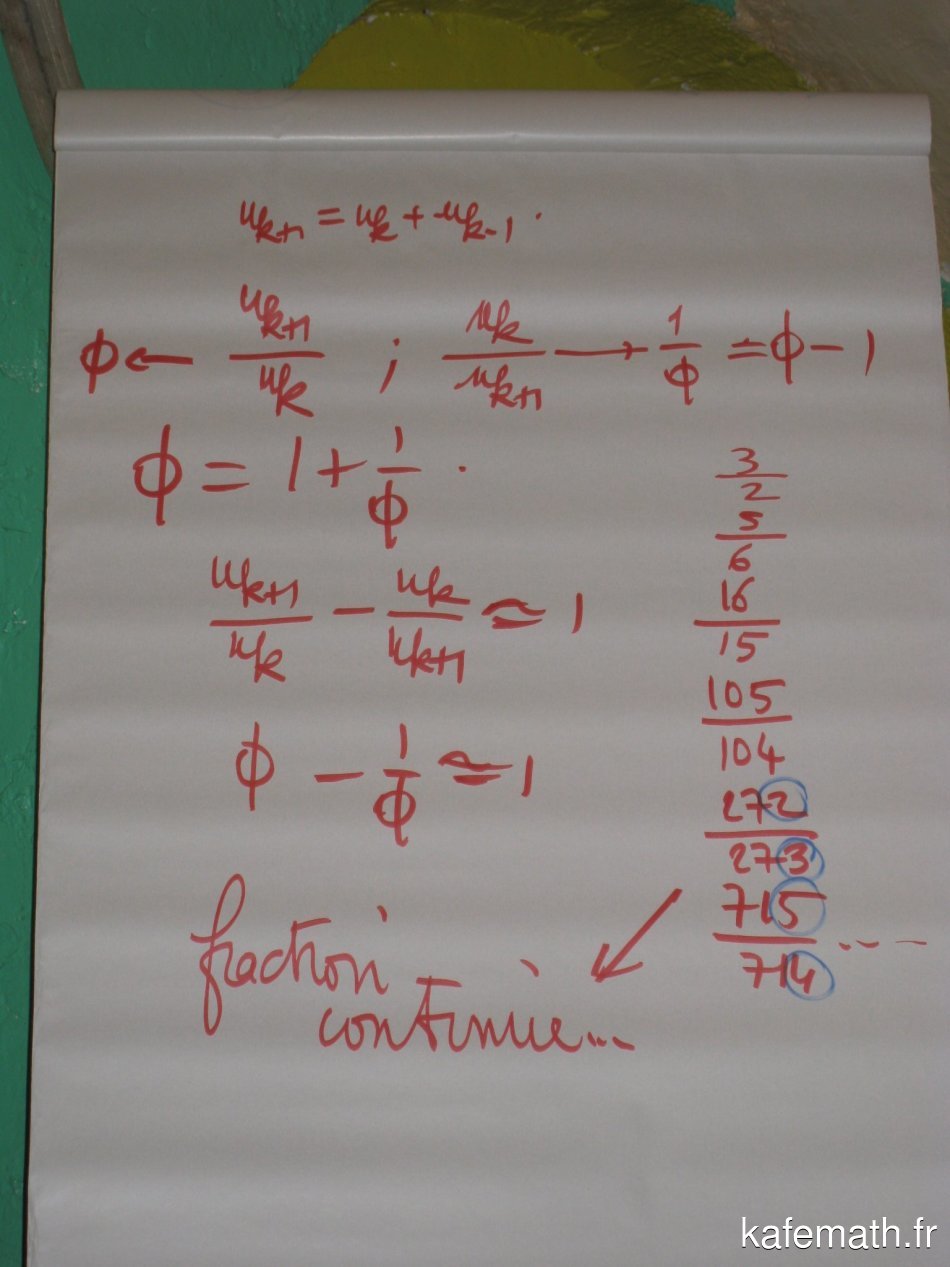 u_{k+1} = u_k + u_{k-1} .
ϕ ← u_{k+1}/u_k ; u_k/u_{k+1} → 1/ϕ = ϕ - 1
ϕ = 1 + 1/ϕ .
u_{k+1}/u_k - u_k/u_{k+1} ≃ 1
ϕ - 1/ϕ ≃ 1
3/2
5/6
16/15
105/104
272/273
715/714 ...
fraction
continue...
kafemath.fr